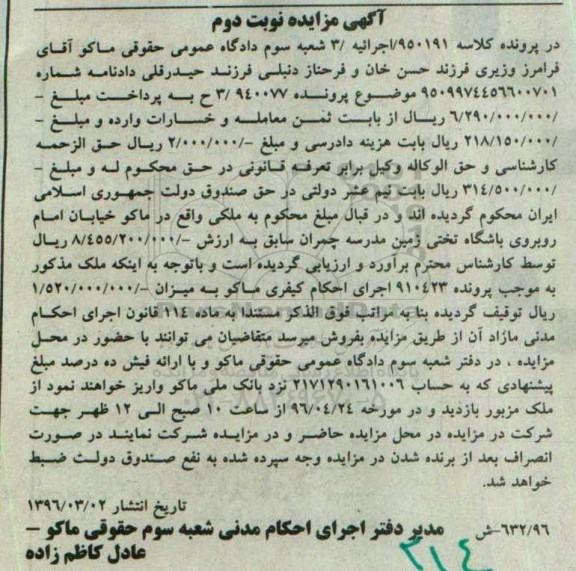 آگهی مزایده نوبت دوم
در پرونده کلاسه ۹۵۰۱۹۱/اجرائیه /۳ شعبه سوم دادگاه عمومی حقوقی ماکو آقای
فرامرز وزیری فرزند حسن خان و فرحناز دنبلی فرزند حیدرقلی دادنامه شماره
۹۵۰۹۹۷۴۴۵۶۶۰۰۷۰۱ موضوع پرونده ۹۴۰۰۷۷ /۳ ح به پرداخت مبلغ –
/۶/۲۹۰/۰۰۰/۰۰۰ ریال از بابت ثمن معامله و خسارات وارده و مبلغ –
/۲۱۸/۱۵۰/۰۰۰ ریال بابت هزینه دادرسی و مبلغ –/۲/۰۰۰/۰۰۰ ریال حق الزحمه
کارشناسی و حق الوکاله وکیل برابر تعرفه قانونی در حق محکوم له و مبلغ –
/۳۱۴/۵۰۰/۰۰۰ ریال بابت نیم عشر دولتی در حق صندوق دولت جمهوری اسلامی
ایران محکوم گردیده اند و در قبال مبلغ محکوم به ملکی واقع در ماکو خیابان امام
روبروی باشگاه تختی زمین مدرسه چمران سابق به ارزش –/۸/۴۵۵/۲۰۰/۰۰۰ ریال
توسط کارشناس محترم برآورد و ارزیابی گردیده است و باتوجه به اینکه ملک مذکور
به موجب پرونده ۹۱۰۴۲۳ اجرای احکام کیفری ماکو به میزان –/۱/۵۲۰/۰۰۰/۰۰۰
ریال توقیف گردیده بنا به مراتب فوق الذکر مستندا به ماده ۱۱۴ قانون اجرای احکام
مدنی مازاد آن از طریق مزایده بفروش میرسد متقاضیان می توانند با حضور در محل
مزایده ، در دفتر شعبه سوم دادگاه عمومی حقوقی ماکو و با ارائه فیش ده درصد مبلغ
پیشنهادی که به حساب ۲۱۷۱۲۹۰۱۶۱۰۰۶ نزد بانک ملی ماکو واریز خواهند نمود از
ملک مزبور بازدید و در مورخه ۹۶/۰۴/۲۴ از ساعت ۱۰ صبح الی ۱۲ ظهر جهت
شرکت در مزایده در محل مزایده حاضر و در مزایده شرکت نمایند در صورت
انصراف بعد از برنده شدن در مزایده وجه سپرده شده به نفع صندوق دولت ضبط
خواهد شد.
تاریخ انتشار ۱۳۹۶/۰۳/۰۲
۶۳۲/۹۶–ش مدیر دفتر اجرای احکام مدنی شعبه سوم حقوقی ماکو –
عادل کاظم زاده
۳۱۴